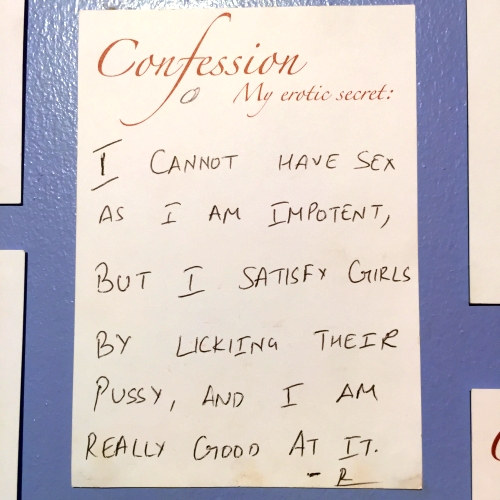 Confession
My erotic secret:
I CANNOT HAVE SEX
AS I AM IMPOTENT,
BUT I SATISFY GIRLS
BY LICKIING THEIR
PUSSY, AND I AM
REALLY GOOD AT IT.
- R